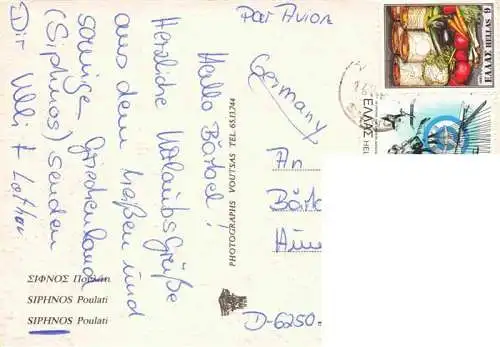 Par Avion
Germany
Hallo Bärbel!
Herzliche Urlaubsgrüße
aus dem heißen und
sonnige Griechenland
(Siphnos) senden
Dir Ulli + Lothar
An
D-6250-
ΣΙΦΝΟΣ Πουλάτι
SIPHNOS Poulati
SIPHNOS Poulati
PHOTOGRAPHS VOUTSAS TEL 65.11.744
ΕΛΛΑΣ HELLAS 9
ΕΛΛΑΣ